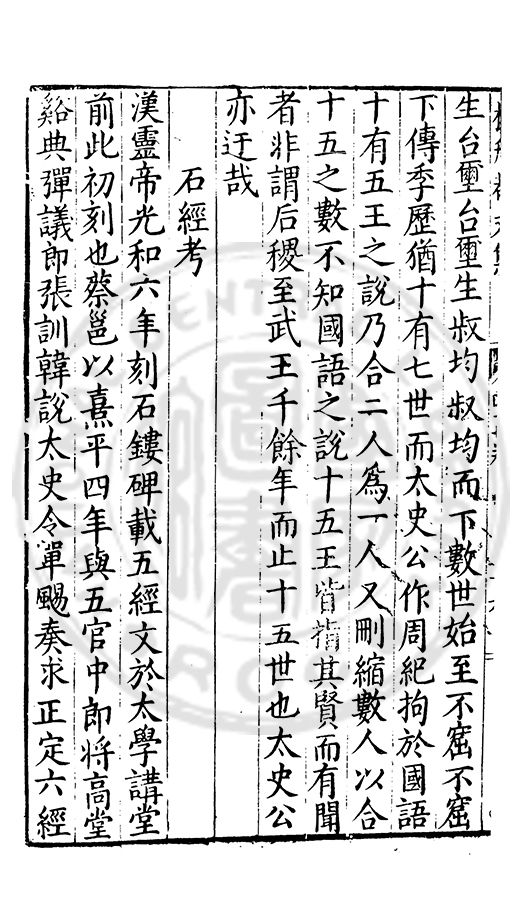 生台璽台璽生叔均叔均而下數世始至不窋不窋
下傳季歷猶十有七世而太史公作周紀拘於國語
十有五王之說乃合二人為一人又刪縮數人以合
十五之數不知國語之說十五王皆指其賢而有聞
者非謂后稷至武王千餘年而止十五世也太史公
亦迂哉
石經考
漢靈帝光和六年刻石鏤碑載五經文於太學講堂
前此初刻也蔡邕以熹平四年與五官中郎將高堂
谿典彈議郎張訓韓說太史令單颺奏求正定六經